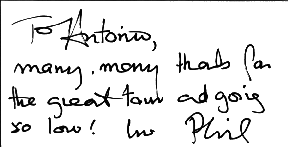 To Antonio,
many, many thanks for
the great tour and going
so low! Phil